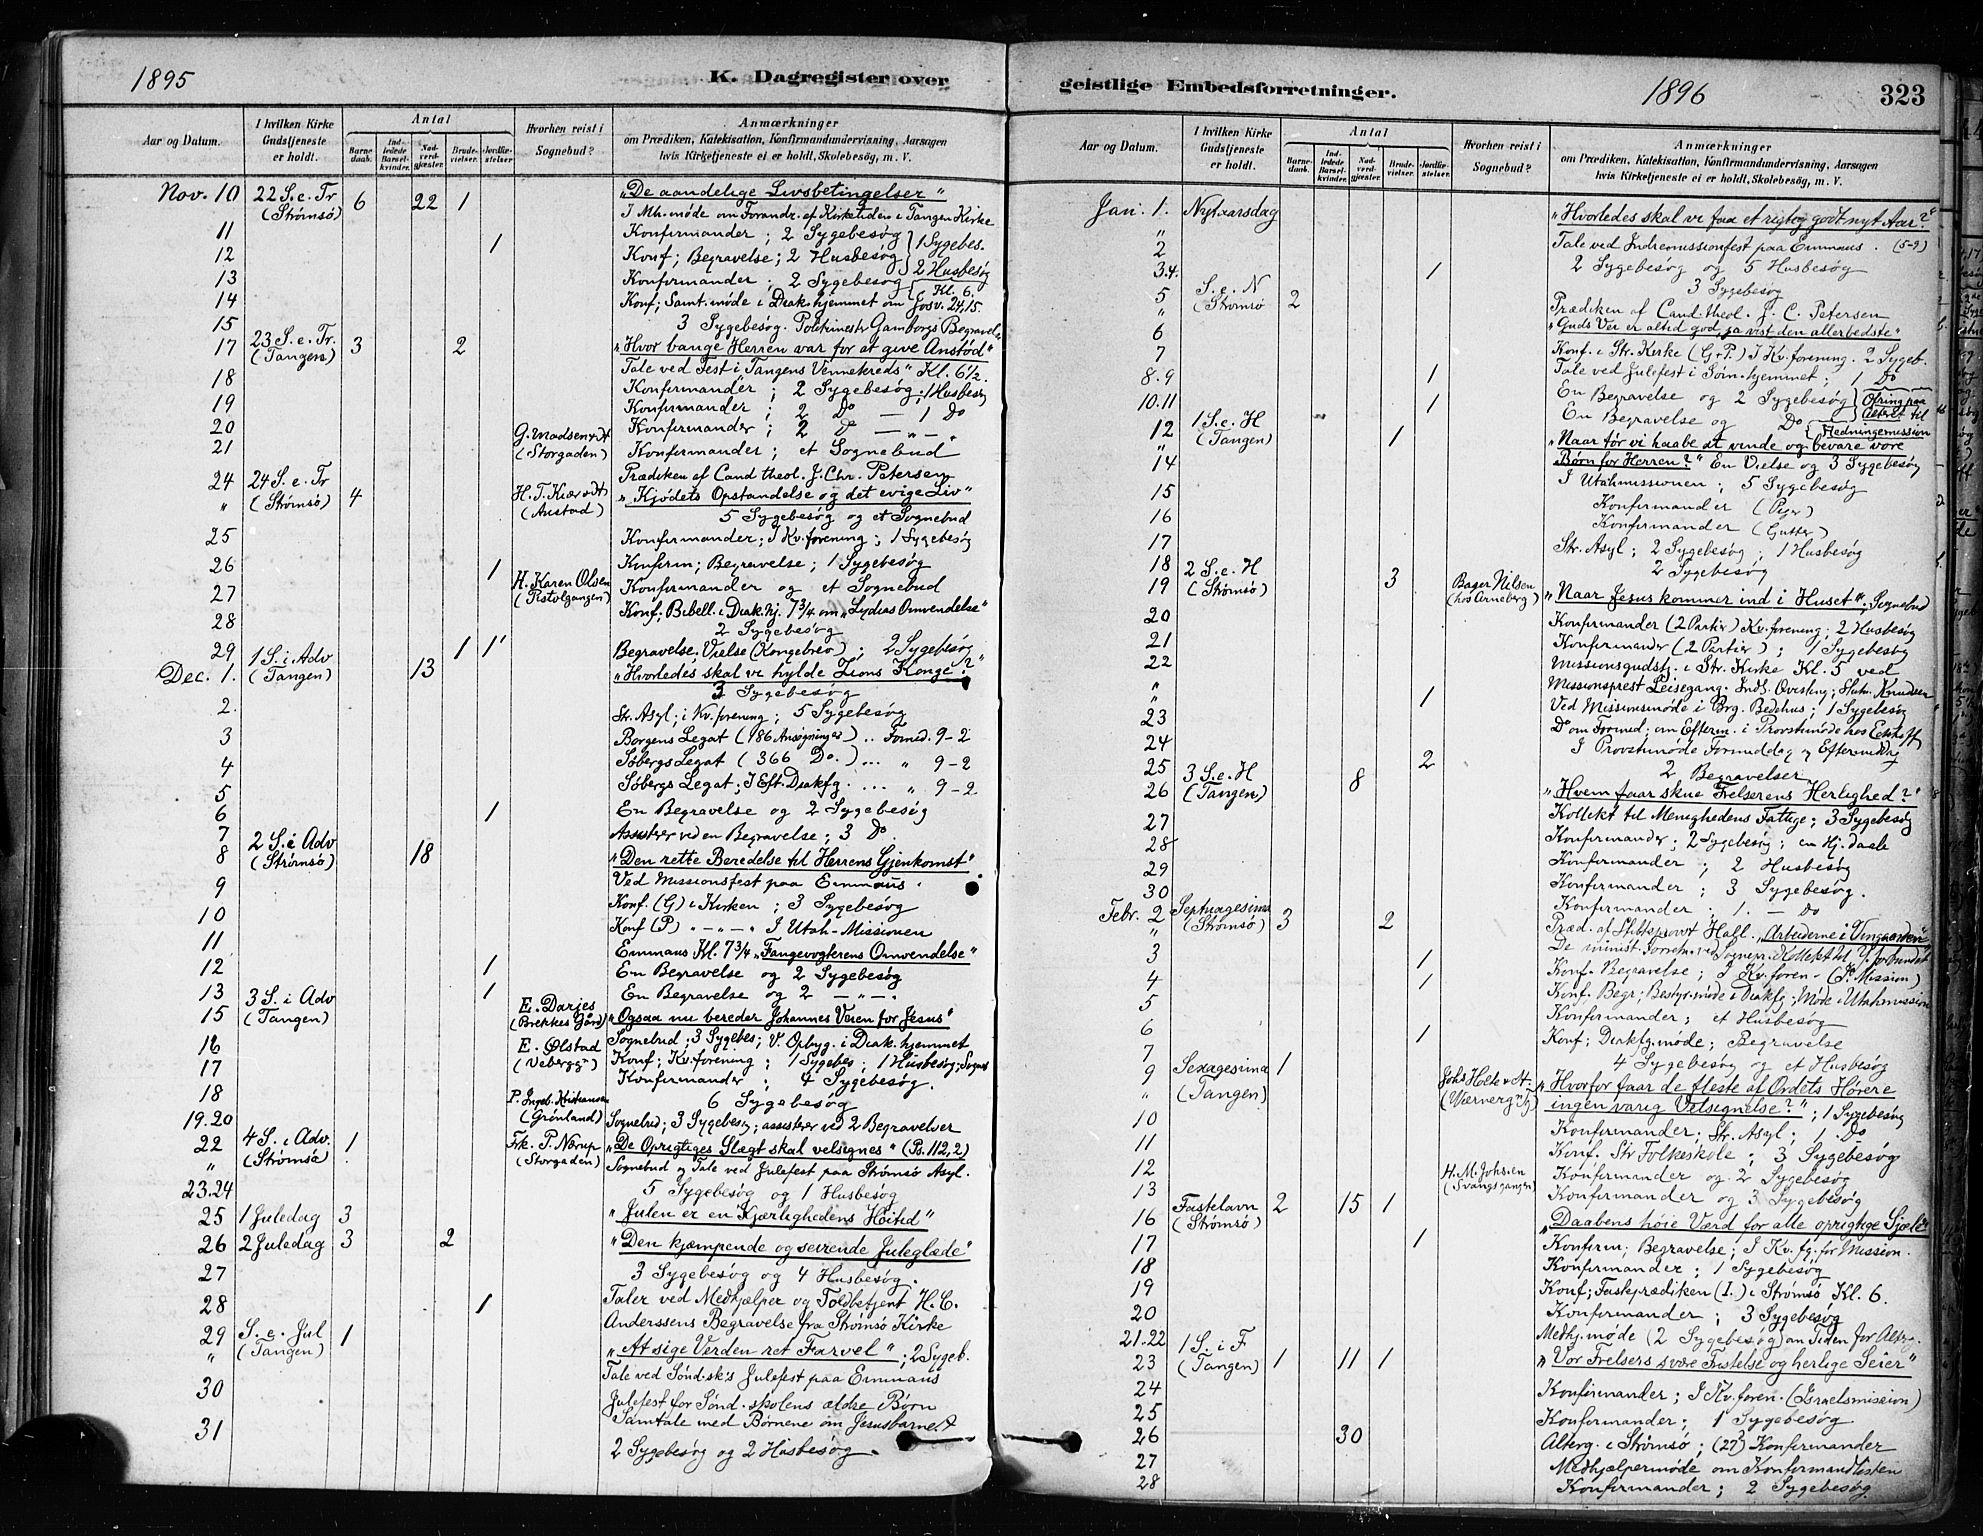 1895
K. Dagregister over
Aar og Datum.
I hvilken Kirke Gudstjeneste er holdt.
Antal
Barnedaab.
Indledede Barselkvinder.
Nadverdgjæster.
Brudevielser.
Jordfæstelser
Hvorhen reist i Sognebud?
Anmærkninger
om Prædiken, Katekisation, Konfirmandundervisning, Aarsagen
hvis Kirketjeneste ei er holdt, Skolebesög, m. V.
Nov. 10 22 S. e. Tr (Strømsö) 6 22 1 „De aandelige Livsbetingelser"
I Mh. møde om Forandr. af Kirketiden i Tangen Kirke
11 Konfirmander ; 2 Sygebesøg 1 Sygebes.
12 1 Konf; Begravelse; 2 Husbesøg 2 Husbesøg
13 Konfirmander ; 2 Sygebesøg Kl. 6.
14 Konf; Samt. møde i Diak. hjemmet om Josv. 24,15.
15 3 Sygebesøg. Politimester Gamborgs Begravels
17 23 S. e. Tr. (Tangen) 3 2 „Hvor bange Herren var for at give Anstød"
Tale ved Fest i Tangens Vennekreds" Kl. 6½.
18 Konfirmander ; 2 Sygebesøg; 1 Husbesøg
19 Konfirmander ; 2 Do — 1 Do
20 Konfirmander ; 2 D — „ — „
21 G. Madsen (Storgaden) Konfirmander ; et Sognebud
24 24 S. e. Tr Prædiken af Cand theol. J. Chr. Petersen
„ (Strømsö) 4 H. T. Kiær (Austad) „Kjødets Opstandelse og det evige Liv"
5 Sygebesøg og et Sognebud
25 Konfirmander; I Kv. forening ; 1 Sygebesøg
26 1 Konfirm; Begravelse ; 1 Sygebesøg
27 H. Karen Olsen (Pistolgangen) Konfirmander og et Sognebud
28 Konf; Bibell. i Diak. hj. 7¾ om „Lydias Omvendelse"
2 Sygebesøg
29 1 1 Begravelse. Vielse (Kongebrev) ; 2 Sygebesøg
Dec. 1. 1 S. i Adv (Tangen) 13 „Hvorledes skal vi hylde Zions Konge?"
3 Sygebesøg
2. Str. Asyl; i Kv. forening ; 5 Sygebesøg
3 Borgens Legat (186 Ansøgninger) .. Formd. 9-2
4 Søbergs Legat ( 366 Do. ) ... „ 9-2
5 Søbergs Legat ; I Eft. Diakfg. ... „ 9-2
6 1 En Begravelse og 2 Sygebesøg
7 Assisterer ved en Begravelse ; 3 Do.
8 2 S. i Adv (Strømsö) 18 „Den rette Beredelse til Herrens Gjenkomst".
Ved Missionsfest paa Emmaus.
9 Konf. (G) i Kirken ; 3 Sygebesøg
10 Konf (P) „ - „ - „ I Utah-Missionen
11 Emmaus Kl. 7¾ „Fangevogterens Omvendelse"
12 1 En Begravelse og 2 Sygebesøg
13 1 En Begravelse og 2 — „ — .
15 3 S. i Adv (Tangen) E. Darjes (Brekkes Gård) „Ogsaa nu bereder Johannes Veien for Jesus"
16 E. Ølstad Sognebud ; 3 Sygebes; V. Opbyg. i Diak. hjemmet
17 Konf; Kv. forening ; 1 Sygebes ; 1 Husbesøg; Sogneb
18 Konfirmander ; 4 Sygebesøg.
19.20 P. Ingeb. Kristiansen (Grønland) 6 Sygebesøg
Sognebud; 3 Sygebesøg; assisterer ved 2 Begravelser
22 4 S. i Adv. (Strømsö) 1 Frk. P. Nærup (Storgaden) „De Oprigtiges Slægt skal velsignes" (Ps. 112,2)
„ Sognebud og Tale ved Julefest paa Strømsö Asyl.
23.24 5 Sygebesøg og 1 Husbesøg
25 1 Juledag 3 „Julen er en Kjærlighedens Høitid"
26 2 Juledag 3 2 „Den kjæmpende og seirende Juleglæde"
27 3 Sygebesøg og 4 Husbesøg.
28 1 Taler ved Medhjælper og Toldbetjent H. C.
Anderssens Begravelse fra Strømsö Kirke
29 S. e. Jul (Tangen) 1 „At sige Verden ret Farvel" ; 2 Sygeb.
„ Tale ved Sönd. sk's Julefest paa Emmaus
30 Julefest for Sönd. skolens ældre Børn
Samtale med Børnene om Jesusbarnet
31 2 Sygebesøg og 2 Husbesøg.
geistlige Embedsforretninger.
1896
323
Aar og Datum.
I hvilken Kirke Gudstjeneste er holdt.
Antal
Barnedaab.
Indledede Barselkvinder.
Nadverdgjæster.
Brudevielser.
Jordfæstelser.
Hvorhen reist i Sognebud?
Anmærkninger
om Prædiken, Katekisation, Konfirmandundervisning, Aarsagen
hvis Kirketjeneste ei er holdt, Skolebesög, m. V.
Jan. 1. Nytaarsdag „Hvorledes skal vi faa et rigtig godt nyt Aar?"
„ Tale ved Indremissionsfest paa Emmaus. (5-9)
2 2 Sygebesøg og 5 Husbesøg
3.4. 1 3 Sygebesøg
5 S. e. N (Strømsö) 2 Prædiken af Cand. theol. J. C. Petersen
„ „Guds Vei er altid god, ja vist den allerbedste"
6 Konf. i Str. Kirke (G+P.) I Kv. forening. 2 Sygeb.
7 Tale ved Julefest i Søm. hjemmet ; 1 Do
8.9 1 En Begravelse og 2 Sygebesøg
10.11 1 En Begravelse og Do
Ofring paa Alteret til Hedningemission
12 1 S. e. H (Tangen) 1 „Naar tør vi haabe at vinde og bevare vore
„ Børn for Herren?" En Vielse og 3 Sygebesøg
14 I Utahmissionen ; 5 Sygebesøg
15 Konfirmander (Piger)
16 Konfirmander (Gutter)
17 Str. Asyl ; 2 Sygebesøg ; 1 Husbesøg
18 2 Sygebesøg
19 2 S. e. H (Strømsö) 3 Bager Nilsen (hos Arneberg) „Naar Jesus kommer ind i Huset". Sognebud
20 Konfirmander (2 Partier) Kv. forening; 2 Husbesøg
21 Konfirmander (2 Partier) ; 1 Sygebesøg
22 Missionsgudstj. i Str. Kirke Kl. 5 ved
„ Missionsprest Leisegang. Indl. Qvisling; Slutn. Knudsen
„ 1 Ved Missionsmøde i Brg. Bedehus; 1 Sygebesøg
23 Do om Formid; om Efterm. i Provstimøde hos Eckhoff
24 I Provstimøde Formiddag og Eftermiddag
25 2 2 Begravelser
26 3 S. e. H (Tangen) 8 „Hvem faar skue Frelserens Herlighed?"
27 Kollekt til Menighedens Fattige ; 3 Sygebesøg
28 Konfirmander ; 2 Sygebesøg ; en Hj. daab
29 Konfirmander ; 2 Husbesøg
30 Konfirmander ; 3 Sygebesøg.
Konfirmander . 1. — Do
Febr. 2 Septuagesima (Strømsö) 3 2 Præd. af Stiftsprovst Hall. „Arbeiderne i Vingaarden"
„ De minist. Forretn. ved Sognepr. Kollekt til
3 1 Konf. Begravelse ; I Kv. foren - (Mission)
4 1 Konf. Begr; Bestyr. møde i Diakfg; Møde i Utahmission
5 Konfirmander ; et Husbesøg
6 1 Konf ; Diakfg. møde ; Begravelse
7 4 Sygebesøg og et Husbesøg
9 Sexagesima (Tangen) 1 „Hvorfor faar de fleste af Ordets Hørere
„ ingen varig Velsignelse?" ; 1 Sygebesøg
10 Konfirmander ; Str. Asyl ; 1 Do
11 Konf. Str Folkeskole ; 3 Sygebesøg
12 H. M. Johsen (Svangsgangen) Konfirmander og 2 Sygebesøg
13 Konfirmander og 3 Sygebesøg
16 Fastelavn (Strømsö) 2 15 1 „Daabens høie Værd for alle oprigtige Sjæle"
17 1 Konfirm; Begravelse ; I Kv. fg. for Mission.
18 Konfirmander ; 1 Sygebesøg
19 Konf; Fasteprædiken (I.) i Strømsö Kl. 6.
20 Konfirmander ; 3 Sygebesøg
21.22 Medhj. møde (2 Sygebesøg) om Tiden for Altg.
23 1 S. i F (Tangen) 1 11 1 „Vor Frelsers svære Fristelse og herlige Seier"
24 Konfirmander ; I Kv. foren. (Israelsmission)
25 Konfirmander ; 1 Sygebesøg
26 30 Alterg. i Strømsö ; (27) Konfirmander
27 Medhjælpermøde om Konfirmandlisten
28 Konfirmander ; 2 Sygebesøg.